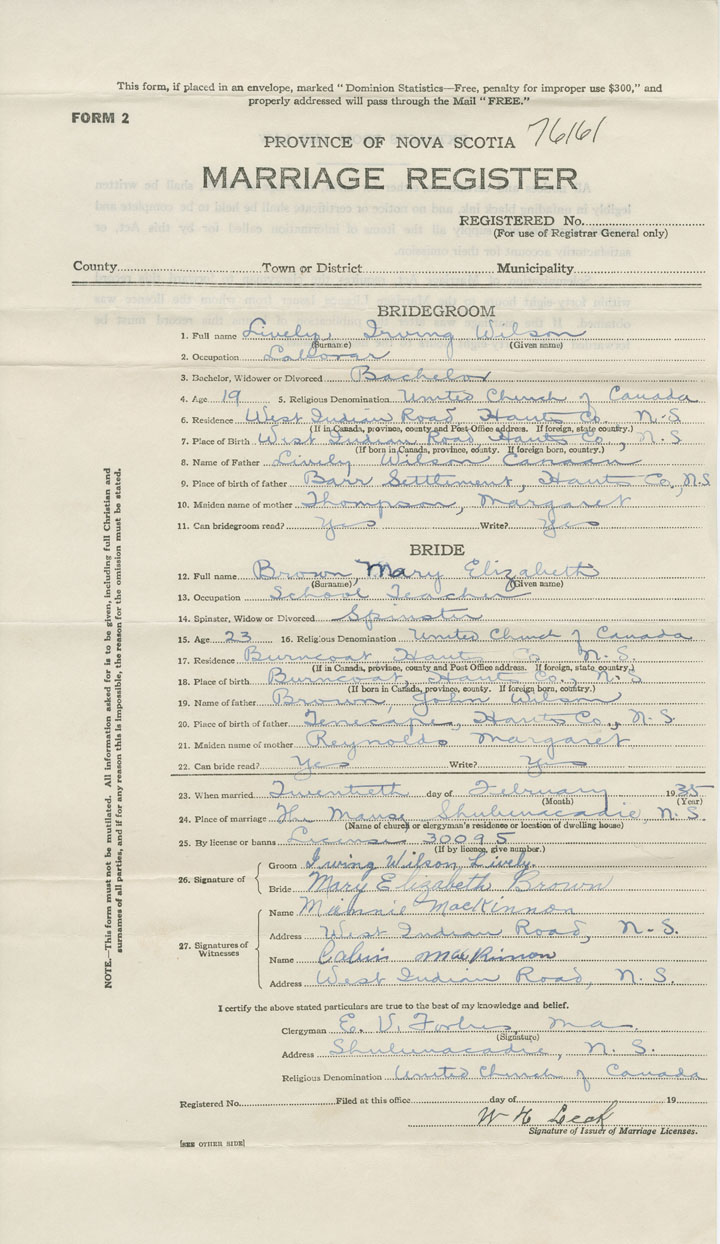 This form, if placed in an envelope, marked "Dominion Statistics—Free, penalty for improper use $300," and
properly addressed will pass through the Mail "FREE."
FORM 2
76161
PROVINCE OF NOVA SCOTIA
MARRIAGE REGISTER
REGISTERED No.
(For use of Registrar General only)
County Town or District Municipality
BRIDEGROOM
1. Full name Lively, Irving Wilson
(Surname) (Given name)
2. Occupation Labourar
3. Bachelor, Widower or Divorced Bachelor
4. Age 19 5. Religious Denomination United Church of Canada
6. Residence West Indian Road Hants Co., N.S
(If in Canada, province, county and Post Office address. If foreign, state country.)
7. Place of Birth West Indian Road Hants Co, N.S
(If born in Canada, province, county. If foreign born, country.)
8. Name of Father Lively Wilson Canaan
9. Place of birth of father Barr Settlement, Hants Co., N.S
10. Maiden name of mother Thompson, Margaret
11. Can bridegroom read? Yes Write? Yes
BRIDE
12. Full name Brown Mary Elizabeth
(Surname) (Given name)
13. Occupation School Teacher
14. Spinster, Widow or Divorced Spinster
15. Age 23 16. Religious Denomination United Church of Canada
17. Residence Burncoat Hants Co N.S.
(If in Canada, province, county and Post Office address. If foreign, state country.)
18. Place of birth Burncoat, Hants Co., N.S
(If born in Canada, province, county. If foreign born, country.)
19. Name of father Brown John Wilson
20. Place of birth of father Tenecape, Hants Co., N.S.
21. Maiden name of mother Reynolds Margaret
22. Can bride read? Yes Write? Yes
23. When married Twentieth day of February 1935
(Month) (Year)
24. Place of marriage The Manse Shubenacadie, N.S.
(Name of church or clergyman's residence or location of dwelling house)
25. By license or banns License 30095
(If by licence, give number.)
26. Signature of
Groom Irving Wilson Lively.
Bride Mary Elizabeth Brown
27. Signatures of Witnesses
Name Minnie MacKinnon
Address West Indian Road, N.S.
Name Calvin MacKinnon
Address West Indian Road, N.S.
I certify the above stated particulars are true to the best of my knowledge and belief.
Clergyman E. V. Forbes M.A.
(Signature)
Address Shubenacadie, N.S.
Religious Denomination United Church of Canada
Registered No. Filed at this office day of 19
W H
Signature of Issuer of Marriage Licenses.
[SEE OTHER SIDE]
NOTE.—This form must not be mutilated. All information asked for is to be given, including full Christian and
surnames of all parties, and if for any reason this is impossible, the reason for the omission must be stated.